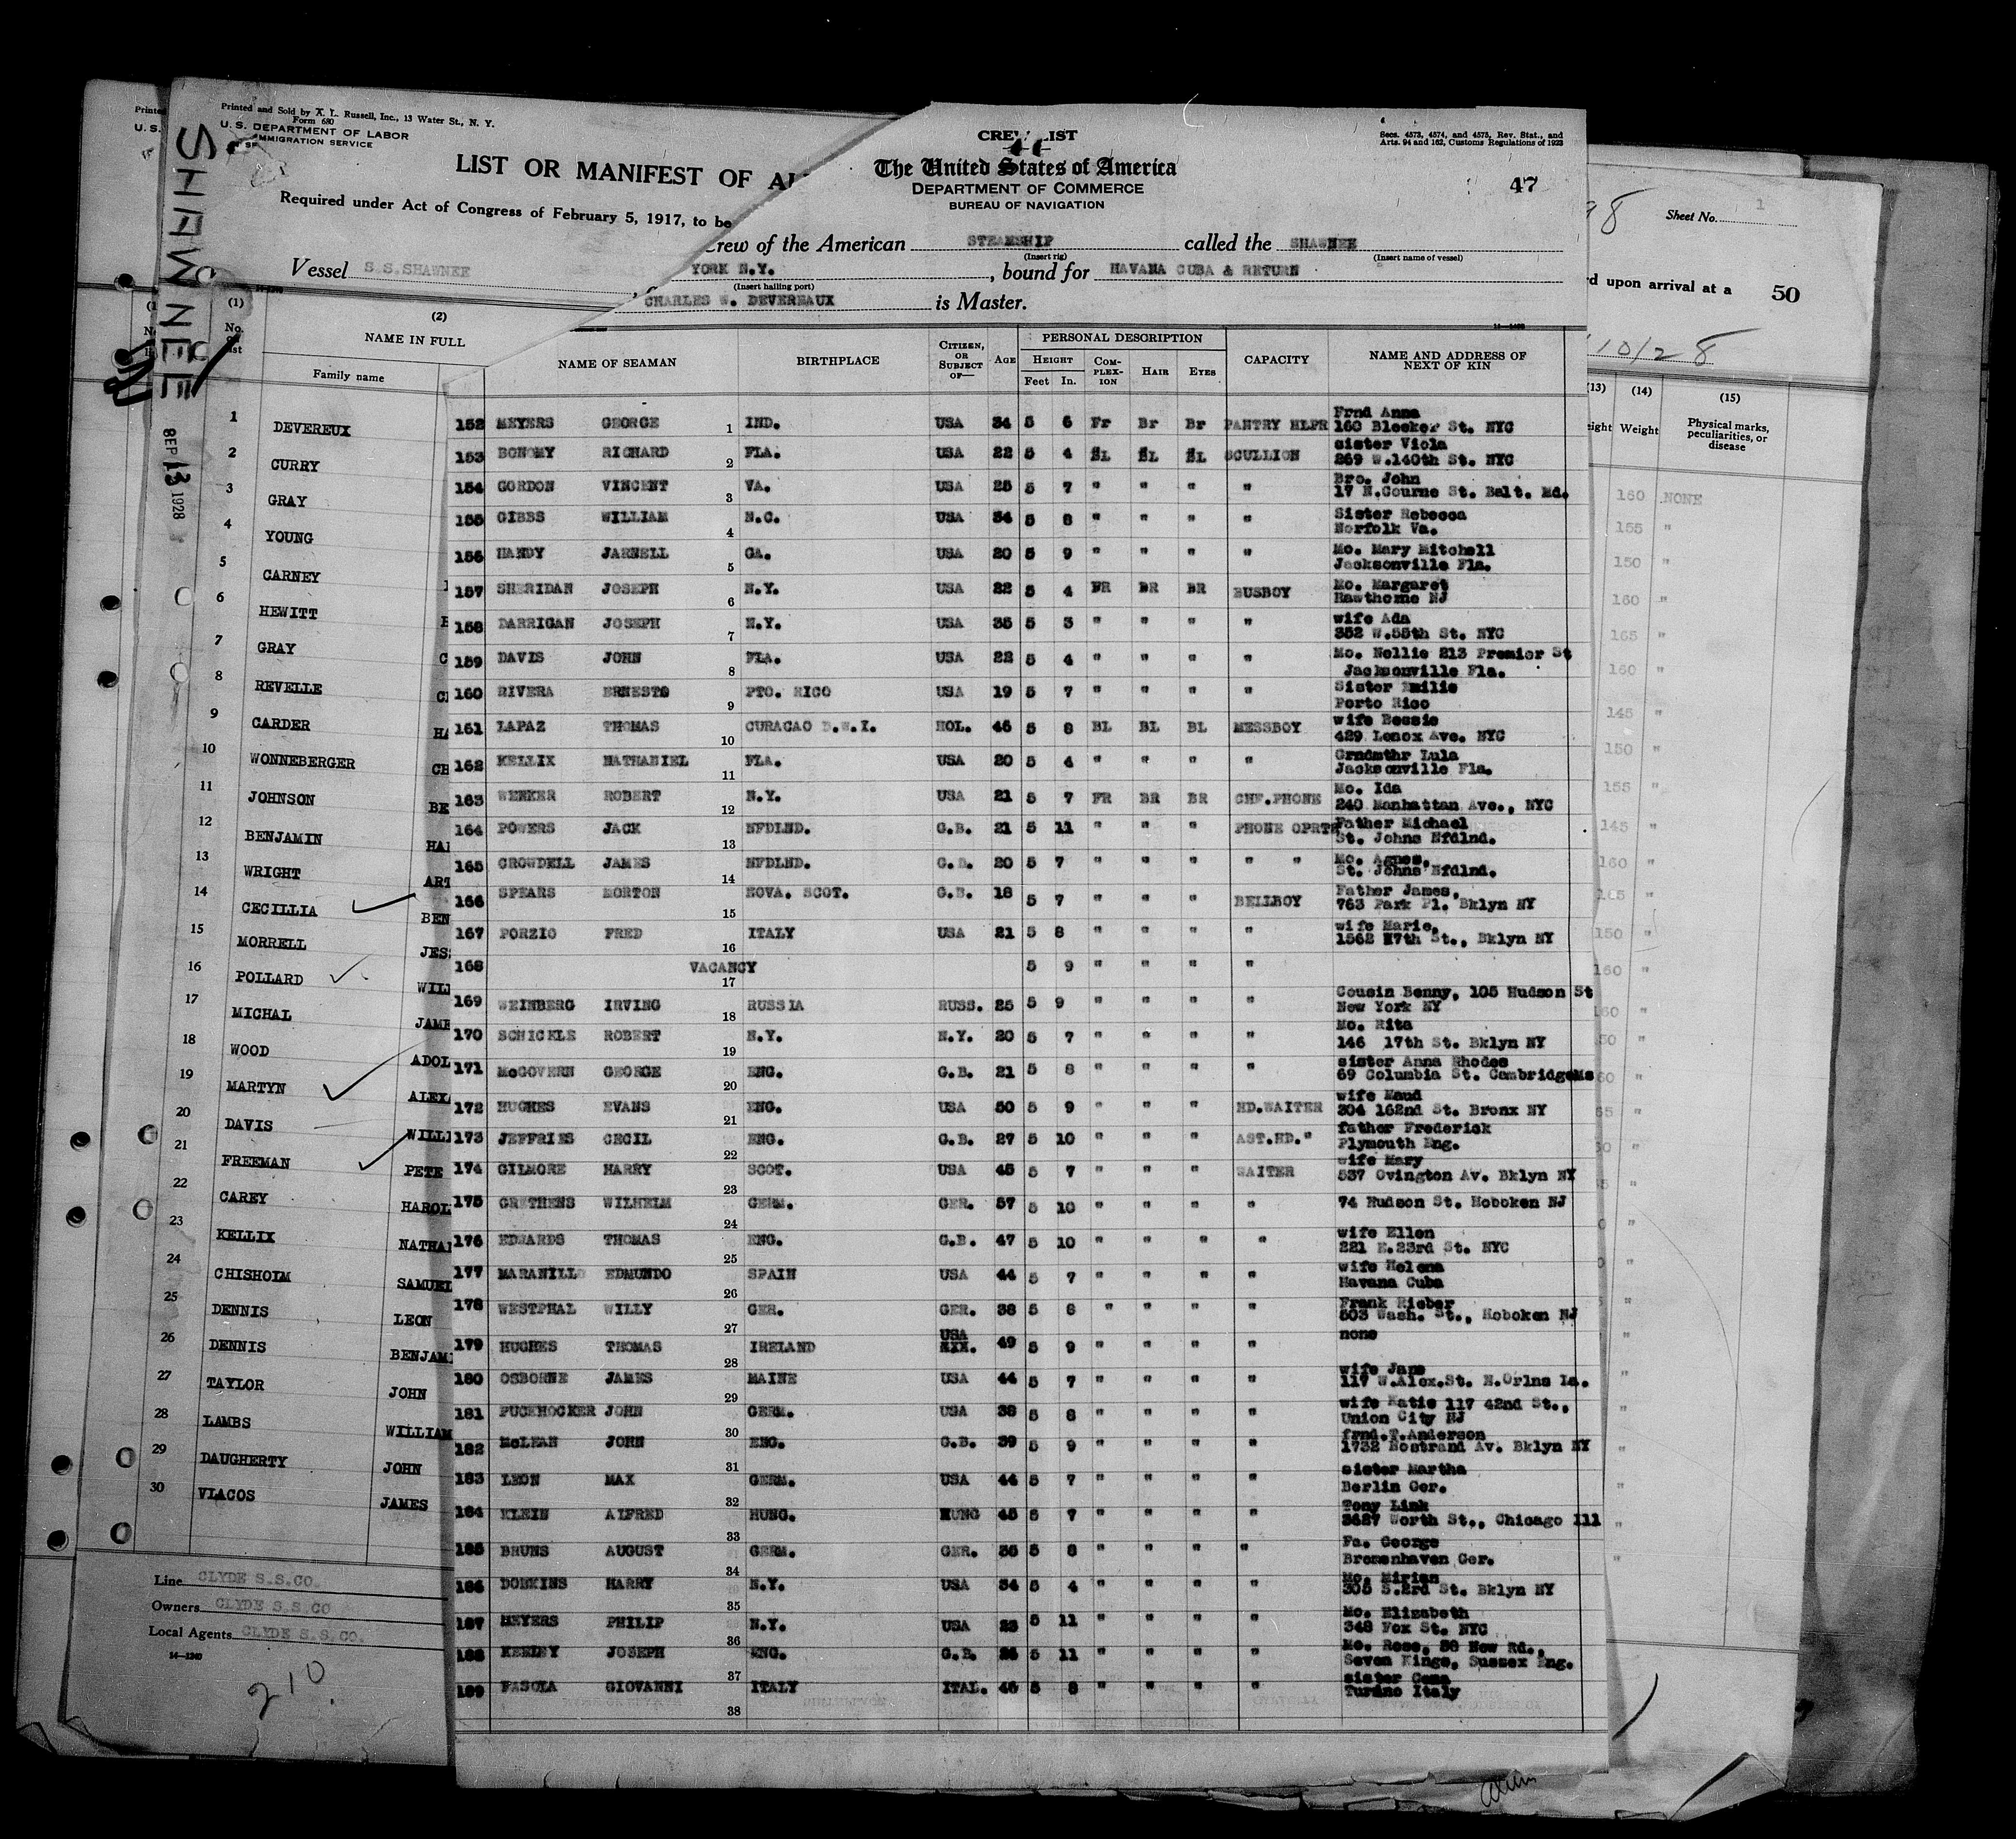 Printed and Sold by X. L. Russell, Inc., 13 Water St., N. Y.
Form 680
U. S. DEPARTMENT OF LABOR
IMMIGRATION SERVICE
SHAWNEE
SEP 13 1928
LIST OR MANIFEST OF AL
Required under Act of Congress of February 5, 1917, to be
Vessel S.S.SHAWNEE
(1) (2)
No. on list
NAME IN FULL
Family name
1 DEVEREUX
2 CURRY
3 GRAY
4 YOUNG
5 CARNEY
6 HEWITT
7 GRAY
8 REVELLE
9 CARDER
10 WONNEBERGER
11 JOHNSON
12 BENJAMIN
13 WRIGHT
14 CECILLIA
15 MORRELL
16 POLLARD
17 MICHAL
18 WOOD
19 MARTYN
20 DAVIS
21 FREEMAN
22 CAREY
23 KELLIX
24 CHISHOIM
25 DENNIS LEON
26 DENNIS BENJAMI
27 TAYLOR JOHN
28 LAMBS WILLIAM
29 DAUGHERTY JOHN
30 VLACOS JAMES
Line CLYDE S.S.CO.
Owners CLYDE S.S.CO
Local Agents CLYDE S.S.CO.
14—1240
210
CREW LIST
The United States of America
DEPARTMENT OF COMMERCE
BUREAU OF NAVIGATION
Secs. 4573, 4574, and 4575, Rev. Stat., and
Arts. 94 and 162, Customs Regulations of 1923
47
Crew of the American STEAMSHIP called the SHAWNEE
(Insert rig) (Insert name of vessel)
YORK N.Y. , bound for HAVANA CUBA & RETURN
(Insert hailing port)
CHARLES W. DEVEREAUX is Master.
NAME OF SEAMAN BIRTHPLACE CITIZEN, OR SUBJECT OF— AGE PERSONAL DESCRIPTION CAPACITY NAME AND ADDRESS OF NEXT OF KIN
HEIGHT COMPLEXION HAIR EYES
Feet In.
152 MEYERS GEORGE 1 IND. USA 34 5 6 Fr Br Br PANTRY HLPR Frnd Anna
160 Bleeker St. NYC
153 BONOMY RICHARD 2 FLA. USA 22 5 4 BL BL BL SCULLION sister Viola
269 W.140th St. NYC
154 GORDON VINCENT 3 VA. USA 25 5 7 " " " " Bro. John
17 N.Courne St. Balt. Md.
155 GIBBS WILLIAM 4 N.C. USA 34 5 8 " " " " Sister Rebecca
Norfolk Va.
156 HANDY JARNELL 5 GA. USA 20 5 9 " " " " Mo. Mary Mitchell
Jacksonville Fla.
157 SHERIDAN JOSEPH 6 N.Y. USA 22 5 4 FR BR BR BUSBOY Mo. Margaret
Hawthorne NJ
158 DARRIGAN JOSEPH 7 N.Y. USA 35 5 3 " " " " wife Ada
352 W.55th St. NYC
159 DAVIS JOHN 8 FLA. USA 22 5 4 " " " " Mo. Nellie 213 Premier St
Jacksonville Fla.
160 RIVERA ERNESTO 9 PTO. RICO USA 19 5 7 " " " " Sister Emilie
Porto Rico
161 LAPAZ THOMAS 10 CURACAO D.W.I. HOL. 45 5 8 BL BL BL MESSBOY wife Bessie
429 Lenox Ave. NYC
162 KELLIX NATHANIEL 11 FLA. USA 20 5 4 " " " " Grndmthr Lula
Jacksonville Fla.
163 WENKER ROBERT 12 N.Y. USA 21 5 7 FR BR BR CHF.PHONE Mo. Ida
240 Manhattan Ave., NYC
164 POWERS JACK 13 NFDLND. G.B. 21 5 11 " " " PHONE OPRTR Father Michael
St. Johns Nfdlnd.
165 CROWDELL JAMES 14 NFDLND. G.B. 20 5 7 " " " " " Mo. Agnes,
St. Johns Nfdlnd.
166 SPEARS MORTON 15 NOVA. SCOT. G.B. 18 5 7 " " " BELLBOY Father James,
763 Park Pl. Bklyn NY
167 PORZIO FRED 16 ITALY USA 21 5 8 " " " " wife Marie,
1562 W7th St., Bklyn NY
168 VACANCY 17 5 9 " " " "
169 WEINBERG IRVING 18 RUSSIA RUSS. 25 5 9 " " " " Cousin Benny, 105 Hudson St
New York NY
170 SCHICKLE ROBERT 19 N.Y. N.Y. 20 5 7 " " " " Mo. Rita
146 17th St. Bklyn NY
171 McGOVERN GEORGE 20 ENG. G.B. 21 5 8 " " " " sister Anna Rhodes
69 Columbia St. CambridgeMs
172 HUGHES EVANS 21 ENG. USA 50 5 9 " " " HD.WAITER wife Maud
304 162nd St. Bronx NY
173 JEFFRIES CECIL 22 ENG. G.B. 27 5 10 " " " AST.HD." father Frederick
Plymouth Eng.
174 GILMORE HARRY 23 SCOT. USA 45 5 7 " " " WAITER wife Mary
537 Ovington Av. Bklyn NY
175 GRETHENS WILHELM 24 GERM. GER. 57 5 10 " " " " 74 Hudson St. Hoboken NJ
176 EDWARDS THOMAS 25 ENG. G.B. 47 5 10 " " " " wife Ellen
221 E.23rd St. NYC
177 MARANILLO EDMUNDO 26 SPAIN USA 44 5 7 " " " " wife Helena
Havana Cuba
178 WESTPHAL WILLY 27 GER. GER. 38 5 8 " " " " Frank Rieber
503 Wash. St., Hoboken NJ
179 HUGHES THOMAS 28 IRELAND USA 49 5 9 " " " " none
180 OSBORNE JAMES 29 MAINE USA 44 5 7 " " " " wife Jane
117 W.Alex.St. N.Orlns La.
181 PUCKHOCKER JOHN 30 GERM. USA 38 5 8 " " " " wife Katie 117 42nd St.,
Union City NJ
182 McLEAN JOHN 31 ENG. G.B. 39 5 9 " " " " frnd.T.Anderson
1732 Nostrand Av. Bklyn NY
183 LEON MAX 32 GERM. USA 44 5 7 " " " " sister Martha
Berlin Ger.
184 KLEIN ALFRED 33 HUNG. HUNG 45 5 7 " " " " Tony Link
3627 Worth St., Chicago Ill
185 BRUNS AUGUST 34 GERM. GER. 35 5 8 " " " " Fa. George
Bremenhaven Ger.
186 DOBKINS HARRY 35 N.Y. USA 34 5 4 " " " " Mo. Mirian
305 S.2rd St. Bklyn NY
187 MEYERS PHILIP 36 N.Y. USA 23 5 11 " " " " Mo. Elizabeth
348 Fox St. NYC
188 KEELEY JOSEPH 37 ENG. G.B. 26 5 11 " " " " Mo. Rose, 38 New Rd.,
Seven Kings, Sussex Eng.
189 FASOLA GIOVANNI 38 ITALY ITAL. 46 5 8 " " " "
Turino Italy
Sheet No. 1
rd upon arrival at a 50
(13) (14) (15)
Weight Physical marks, peculiarities, or disease
150 NONE
155 "
150 "
160 "
165 "
160 "
145 "
150 "
155 "
145 "
160 "
165 "
150 "
160 "